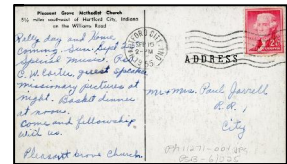 Pleasant Grove Methodist Church
5½ miles southwest of Hartford City, Indiana
on the Williams Road
Rally day and home
coming, Sun. Sept 25
Special music. Rev.
C. W. Carter, guest speaker
missionary pictures at
night. Basket dinner
at noon.
Come and fellowship
with us.
Pleasant Grove Church.
HARTFORD CITY, IND.
SEP 19
PM
1955
2¢
ADDRESS
Mr & Mrs. Paul Jarrell
R.R. 1
City